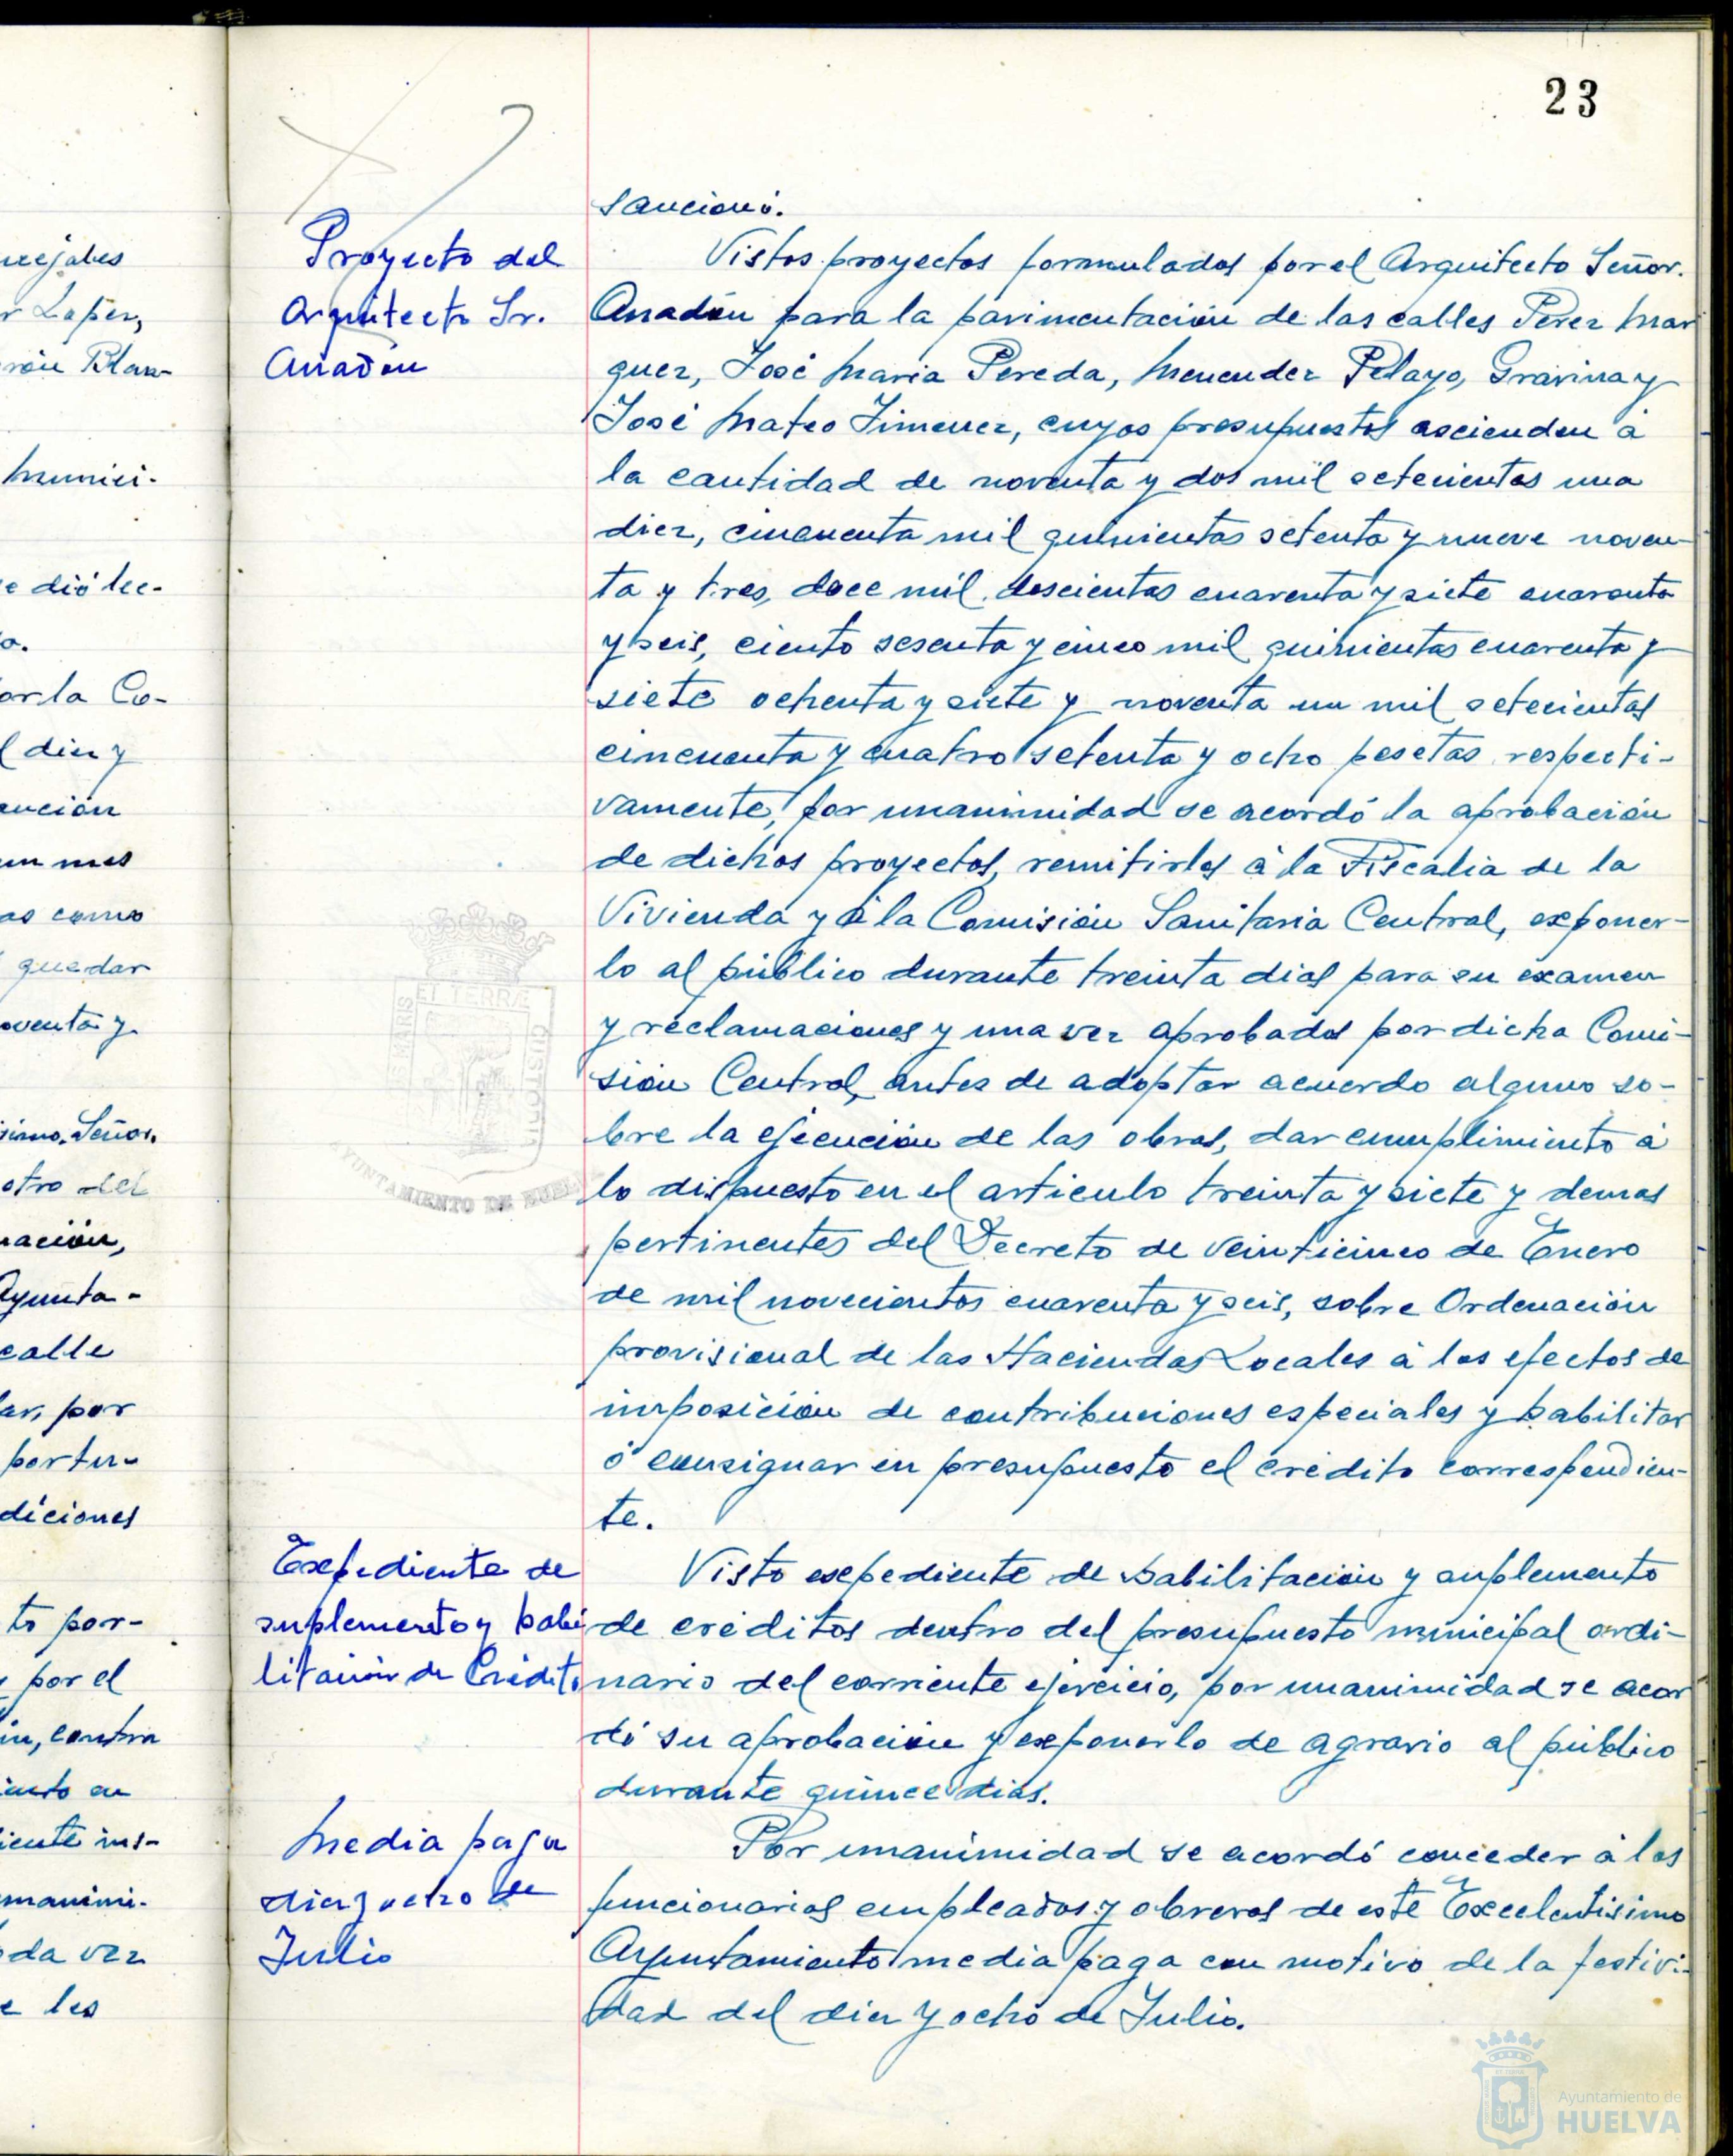 23
sancionó.
Proyecto del
Arquitecto Sr.
Anadón
Vistos proyectos formulados por el Arquitecto Señor.
Anadón para la pavimentación de las calles Perez Mar
quez, José Maria Pereda, Menendez Pelayo, Gravina y
José Mateo Jimenez, cuyos presupuestos ascienden á
la cantidad de noventa y dos mil setecientas una
diez, cincuenta mil quinientas setenta y nueve noven-
ta y tres, doce mil doscientas cuarenta y siete cuarenta
y seis, ciento sesenta y cinco mil quinientas cuarenta y
siete ochenta y siete y noventa un mil setecientas
cincuenta y cuatro setenta y ocho pesetas respecti-
vamente, por unanimidad se acordó la aprobación
de dichos proyectos, remitirlos á la Fiscalia de la
Vivienda y á la Comisión Sanitaria Central, exponer-
lo al público durante treinta dias para su examen
y reclamaciones y una vez aprobados por dicha Comi-
sión Central, antes de adoptar acuerdo alguno so-
bre la ejecución de las obras, dar cumplimiento á
lo dispuesto en el articulo treinta y siete y demas
pertinentes del Decreto de veinticinco de Enero
de mil novecientos cuarenta y seis, sobre Ordenación
provisional de las Haciendas Locales á los efectos de
imposición de contribuciones especiales y habilitar
ó consignar en presupuesto el crédito correspondien-
te.
Expediente de
suplemento y habi
litación de Crédito
Visto expediente de habilitación y suplemento
de créditos dentro del presupuesto municipal ordi-
nario del corriente ejercicio, por unanimidad se acor
dó su aprobación y exponerlo de agravio al público
durante quince dias.
Media paga
diez y ocho de
Julio
Por unanimidad se acordó conceder á los
funcionarios empleados y obreros de este Excelentisimo
Ayuntamiento media paga con motivo de la festivi-
dad del diez y ocho de Julio.
ET TERRÆ
IS MARIS
CUSTODIA
AYUNTAMIENTO DE HUEL
Ayuntamiento de
HUELVA
cejales
r Lopez,
rón Blan-
Munici-
e dió lec-
o.
or la Co-
l diez y
ención
un mes
as como
quedar
oventa y
simo. Señor.
otro del
nación,
Ayunta-
calle
ar, por
portu-
diciones
to por-
y por el
in, contra
iento en
iente ins-
nanimi-
da vez
e les